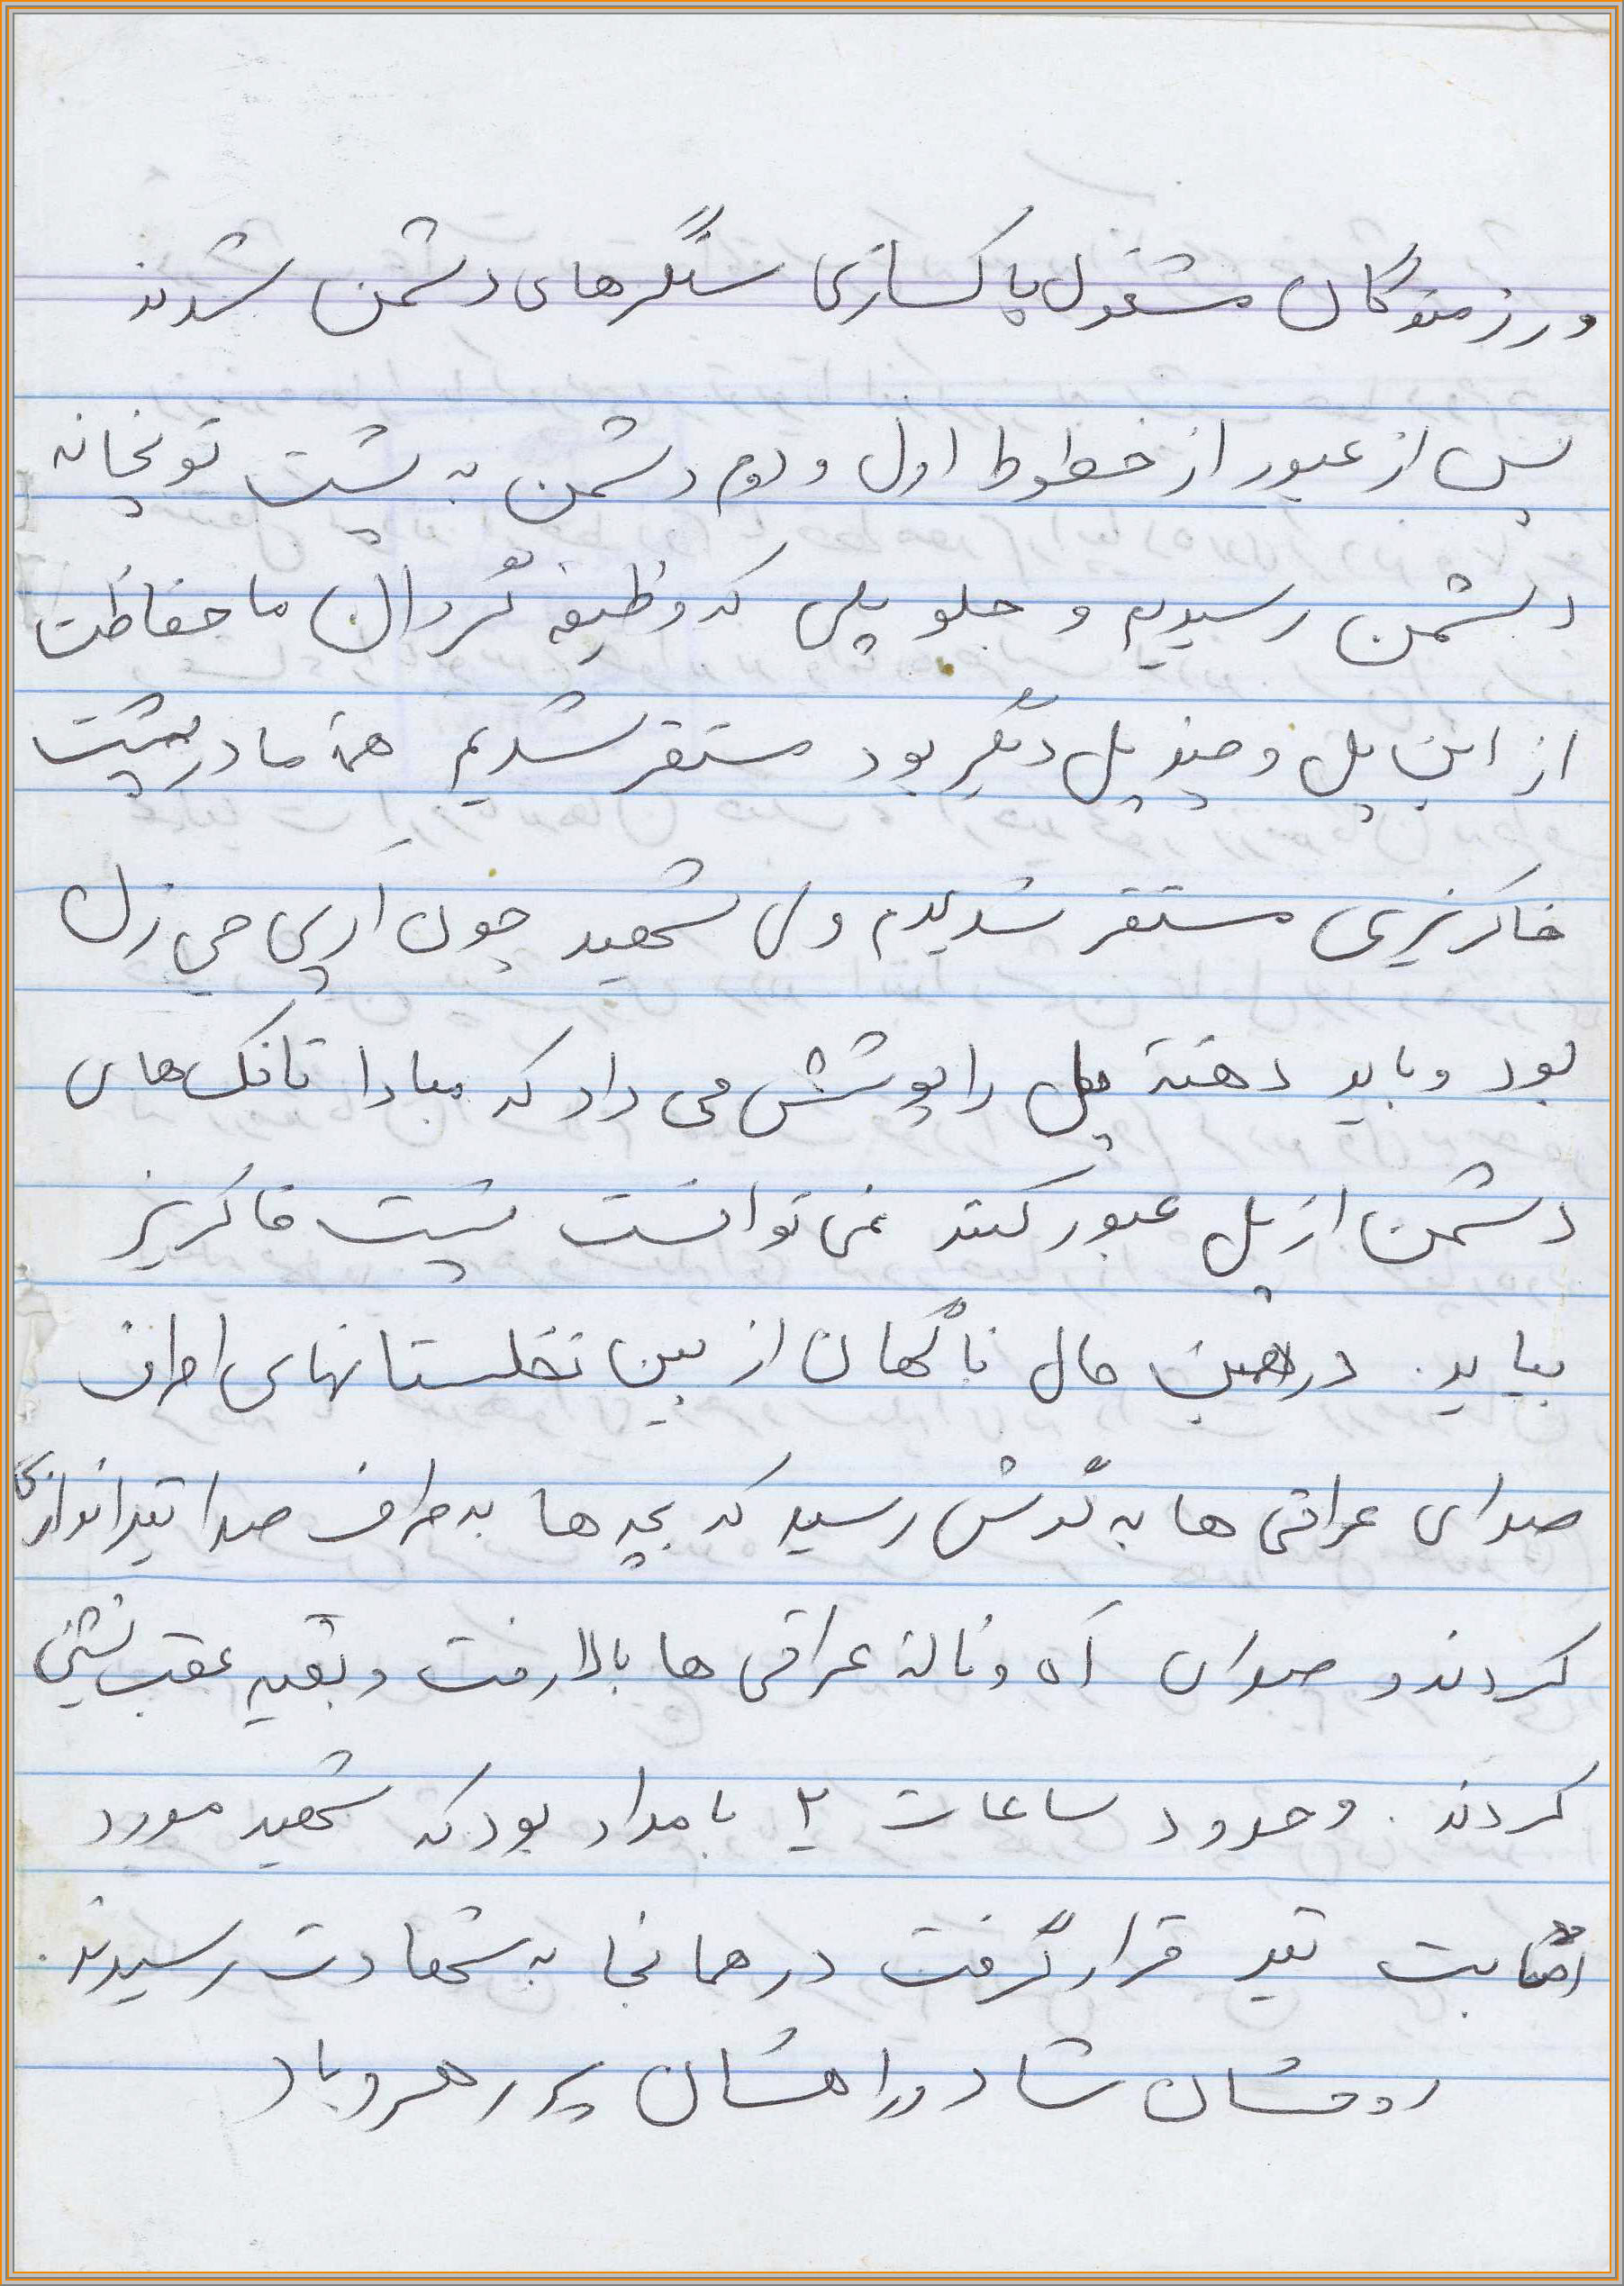 ورزمندگان مشغول پاکسازی سنگرهای دشمن شدند
پس از عبور از خطوط اول و دوم دشمن به پشت توپخانه
دشمن رسیدیم و جلو پلی که وظیفه گردان ما حفاظت
از این پل و چند پل دیگر بود مستقر شدیم همهٔ ما در پشت
خاکریزی مستقر شدیدم ولی شهید چون آرپی جی زن
بود و باید دهنهٔ پل را پوشش می داد که مبادا تانک های
دشمن از پل عبور کنند نمی توانست پشت خاکریز
بیاید. در همین حال ناگهان از بین نخلستانهای اطراف
صدای عراقی ها به گوش رسید که بچه ها به طرف صدا تیراندازی
کردند و صدای آه و نالهٔ عراقی ها بالا رفت و بقیه عقب نشینی
کردند. و حدود ساعات ۲ بامداد بود که شهید مورد
اصابت تیر قرار گرفت در همانجا به شهادت رسیدند.
روحشان شاد و راهشان پر رهرو باد